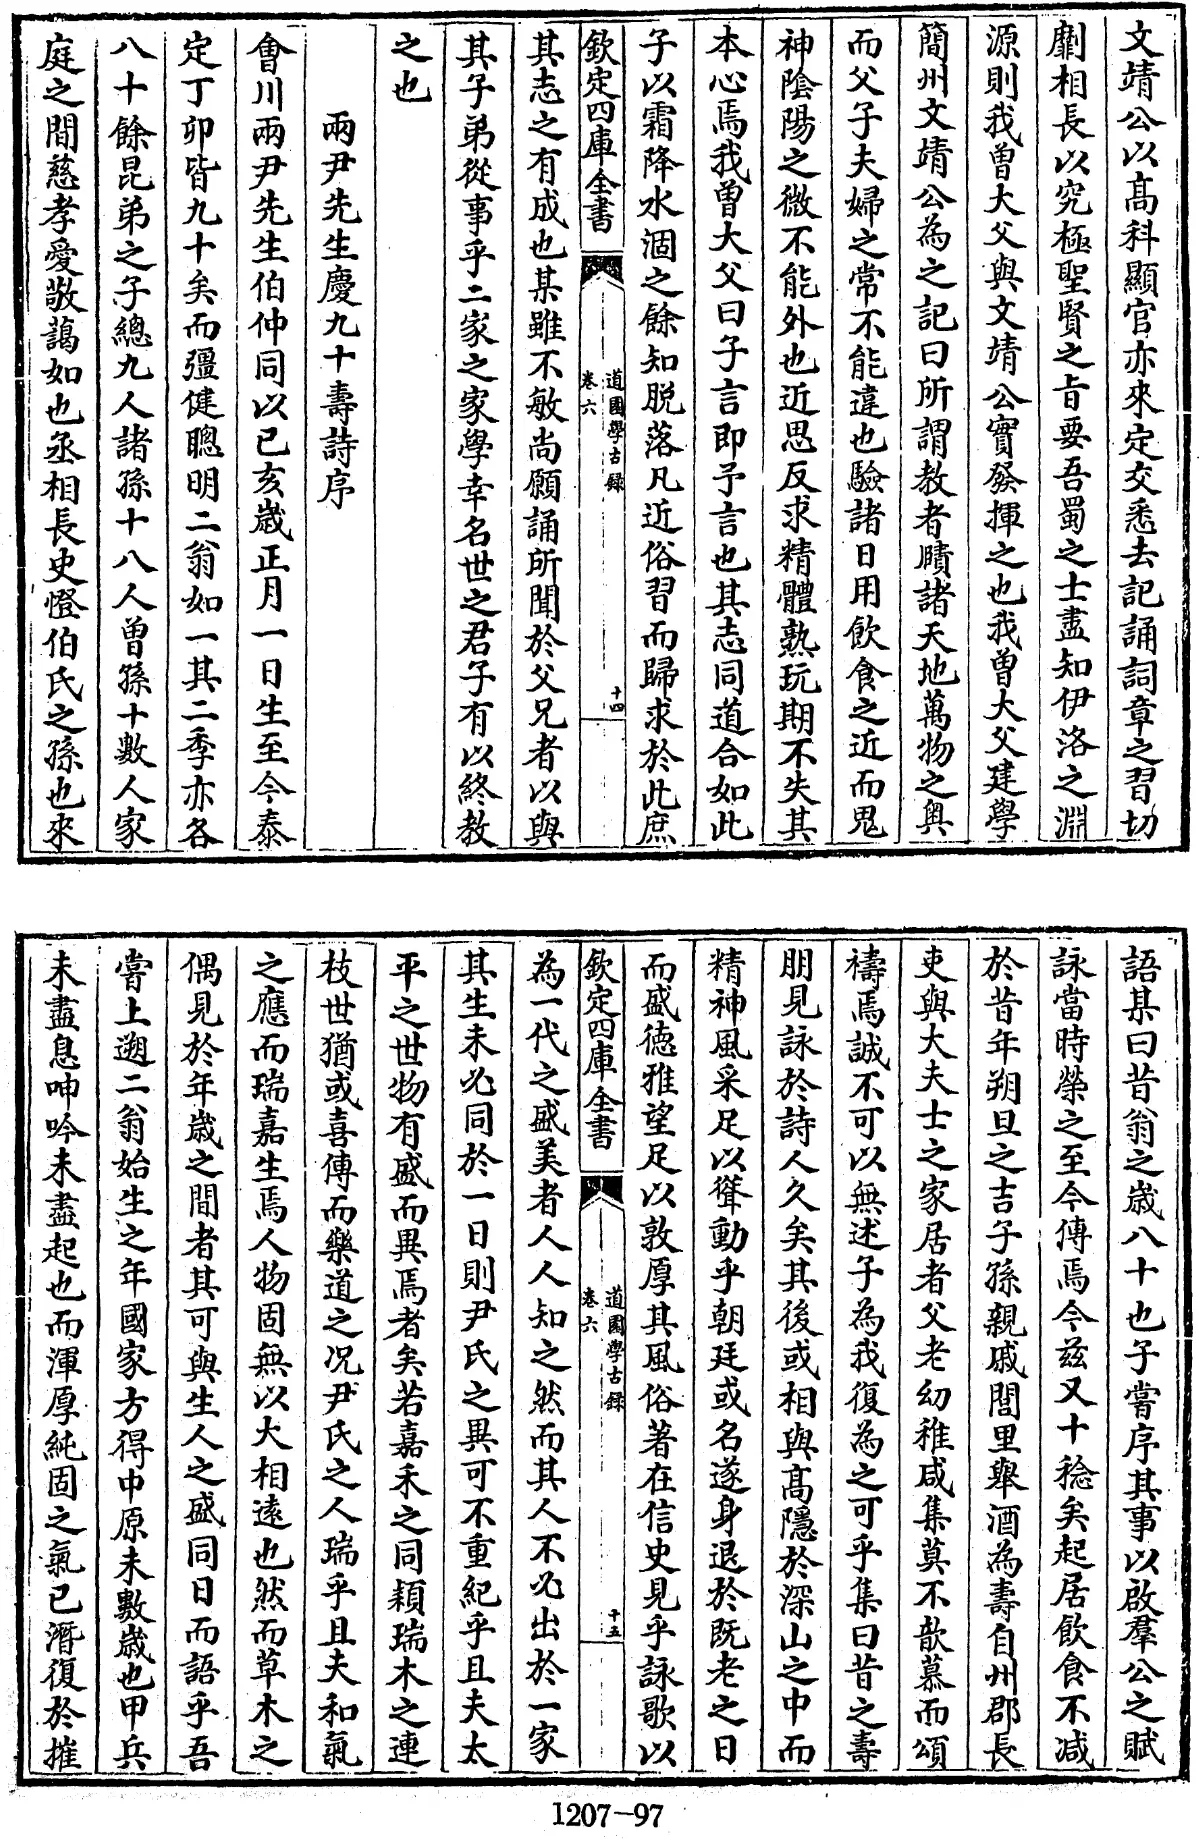 文靖公以髙科顯官亦來定交悉去記誦詞章之習切
劘相長以究極聖賢之㫖要吾蜀之士盡知伊洛之淵
源則我曽大父與文靖公實發揮之也我曽大父建學
簡州文靖公為之記曰所謂教者賾諸天地萬物之奥
而父子夫婦之常不能違也驗諸日用飲食之近而鬼
神陰陽之微不能外也近思反求精體熟玩期不失其
本心焉我曽大父曰子言即予言也其志同道合如此
子以霜降水涸之餘知脱落凡近俗習而歸求於此庶
欽定四庫全書
道園學古録
卷六
十四
其志之有成也某雖不敏尚願誦所聞於父兄者以與
其子弟從事乎二家之家學幸名世之君子有以終教
之也
兩尹先生慶九十壽詩序
㑹川兩尹先生伯仲同以已亥嵗正月一日生至今泰
定丁卯皆九十矣而彊健聰明二翁如一其二季亦各
八十餘昆弟之子總九人諸孫十八人曽孫十數人家
庭之間慈孝愛敬藹如也丞相長史憕伯氏之孫也來
語某曰昔翁之嵗八十也子嘗序其事以啟羣公之賦
詠當時榮之至今傳焉今兹又十稔矣起居飲食不减
於昔年朔旦之吉子孫親戚閭里舉酒為壽自州郡長
吏與大夫士之家居者父老幼稚咸集莫不歆慕而頌
禱焉誠不可以無述子為我復為之可乎集曰昔之壽
朋見詠於詩人久矣其後或相與髙隱於深山之中而
精神風采足以聳動乎朝廷或名遂身退於既老之日
而盛徳雅望足以敦厚其風俗著在信史見乎詠歌以
欽定四庫全書
道園學古録
卷六
十五
為一代之盛美者人人知之然而其人不必出於一家
其生未必同於一日則尹氏之異可不重紀乎且夫太
平之世物有盛而異焉者矣若嘉禾之同穎瑞木之連
枝世猶或喜傳而樂道之况尹氏之人瑞乎且夫和氣
之應而瑞嘉生焉人物固無以大相逺也然而草木之
偶見於年嵗之間者其可與生人之盛同日而語乎吾
嘗上遡二翁始生之年國家方得中原未數嵗也甲兵
未盡息呻吟未盡起也而渾厚純固之氣已潛復於摧
1207-97